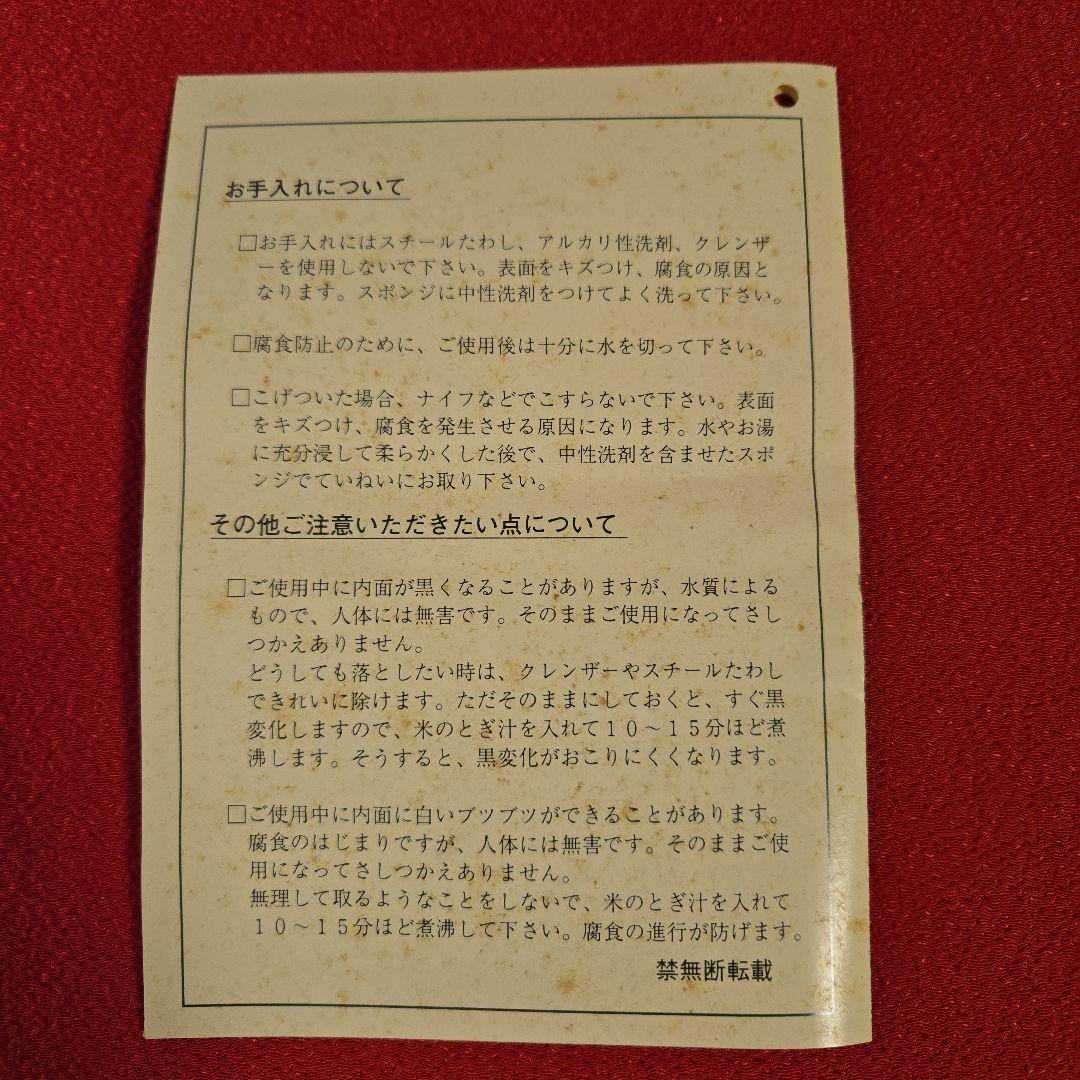 お手入れについて
□お手入れにはスチールたわし、アルカリ性洗剤、クレンザ
ーを使用しないで下さい。表面をキズつけ、腐食の原因と
なります。スポンジに中性洗剤をつけてよく洗って下さい。
□腐食防止のために、ご使用後は十分に水を切って下さい。
□こげついた場合、ナイフなどでこすらないで下さい。表面
をキズつけ、腐食を発生させる原因になります。水やお湯
に充分浸して柔らかくした後で、中性洗剤を含ませたスポ
ンジでていねいにお取り下さい。
その他ご注意いただきたい点について
□ご使用中に内面が黒くなることがありますが、水質による
もので、人体には無害です。そのままご使用になってさし
つかえありません。
どうしても落としたい時は、クレンザーやスチールたわし
できれいに除けます。ただそのままにしておくと、すぐ黒
変化しますので、米のとぎ汁を入れて10～15分ほど煮
沸します。そうすると、黒変化がおこりにくくなります。
□ご使用中に内面に白いブツブツができることがあります。
腐食のはじまりですが、人体には無害です。そのままご使
用になってさしつかえありません。
無理して取るようなことをしないで、米のとぎ汁を入れて
10～15分ほど煮沸して下さい。腐食の進行が防げます。
禁無断転載